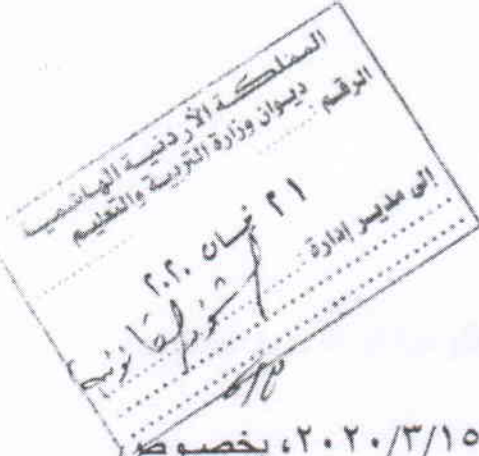 المملكة الأردنية الهاشمية
ديوان وزارة التربية والتعليم
الرقم :
٢١ نيسان ٢٠٢٠
إلى مدير إدارة :
الشؤون القانونية
٢٠٢٠/٣/١٥، بخصوص